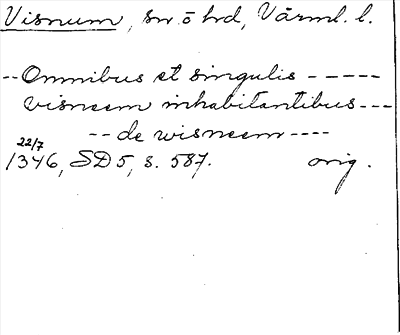 Visnum, sn ö hd, Värml. l.
--Omnibus et singulis -----
visneem inhabitantibus---
--de wisneem----
22/7
1346, SD 5, s. 587. orig.